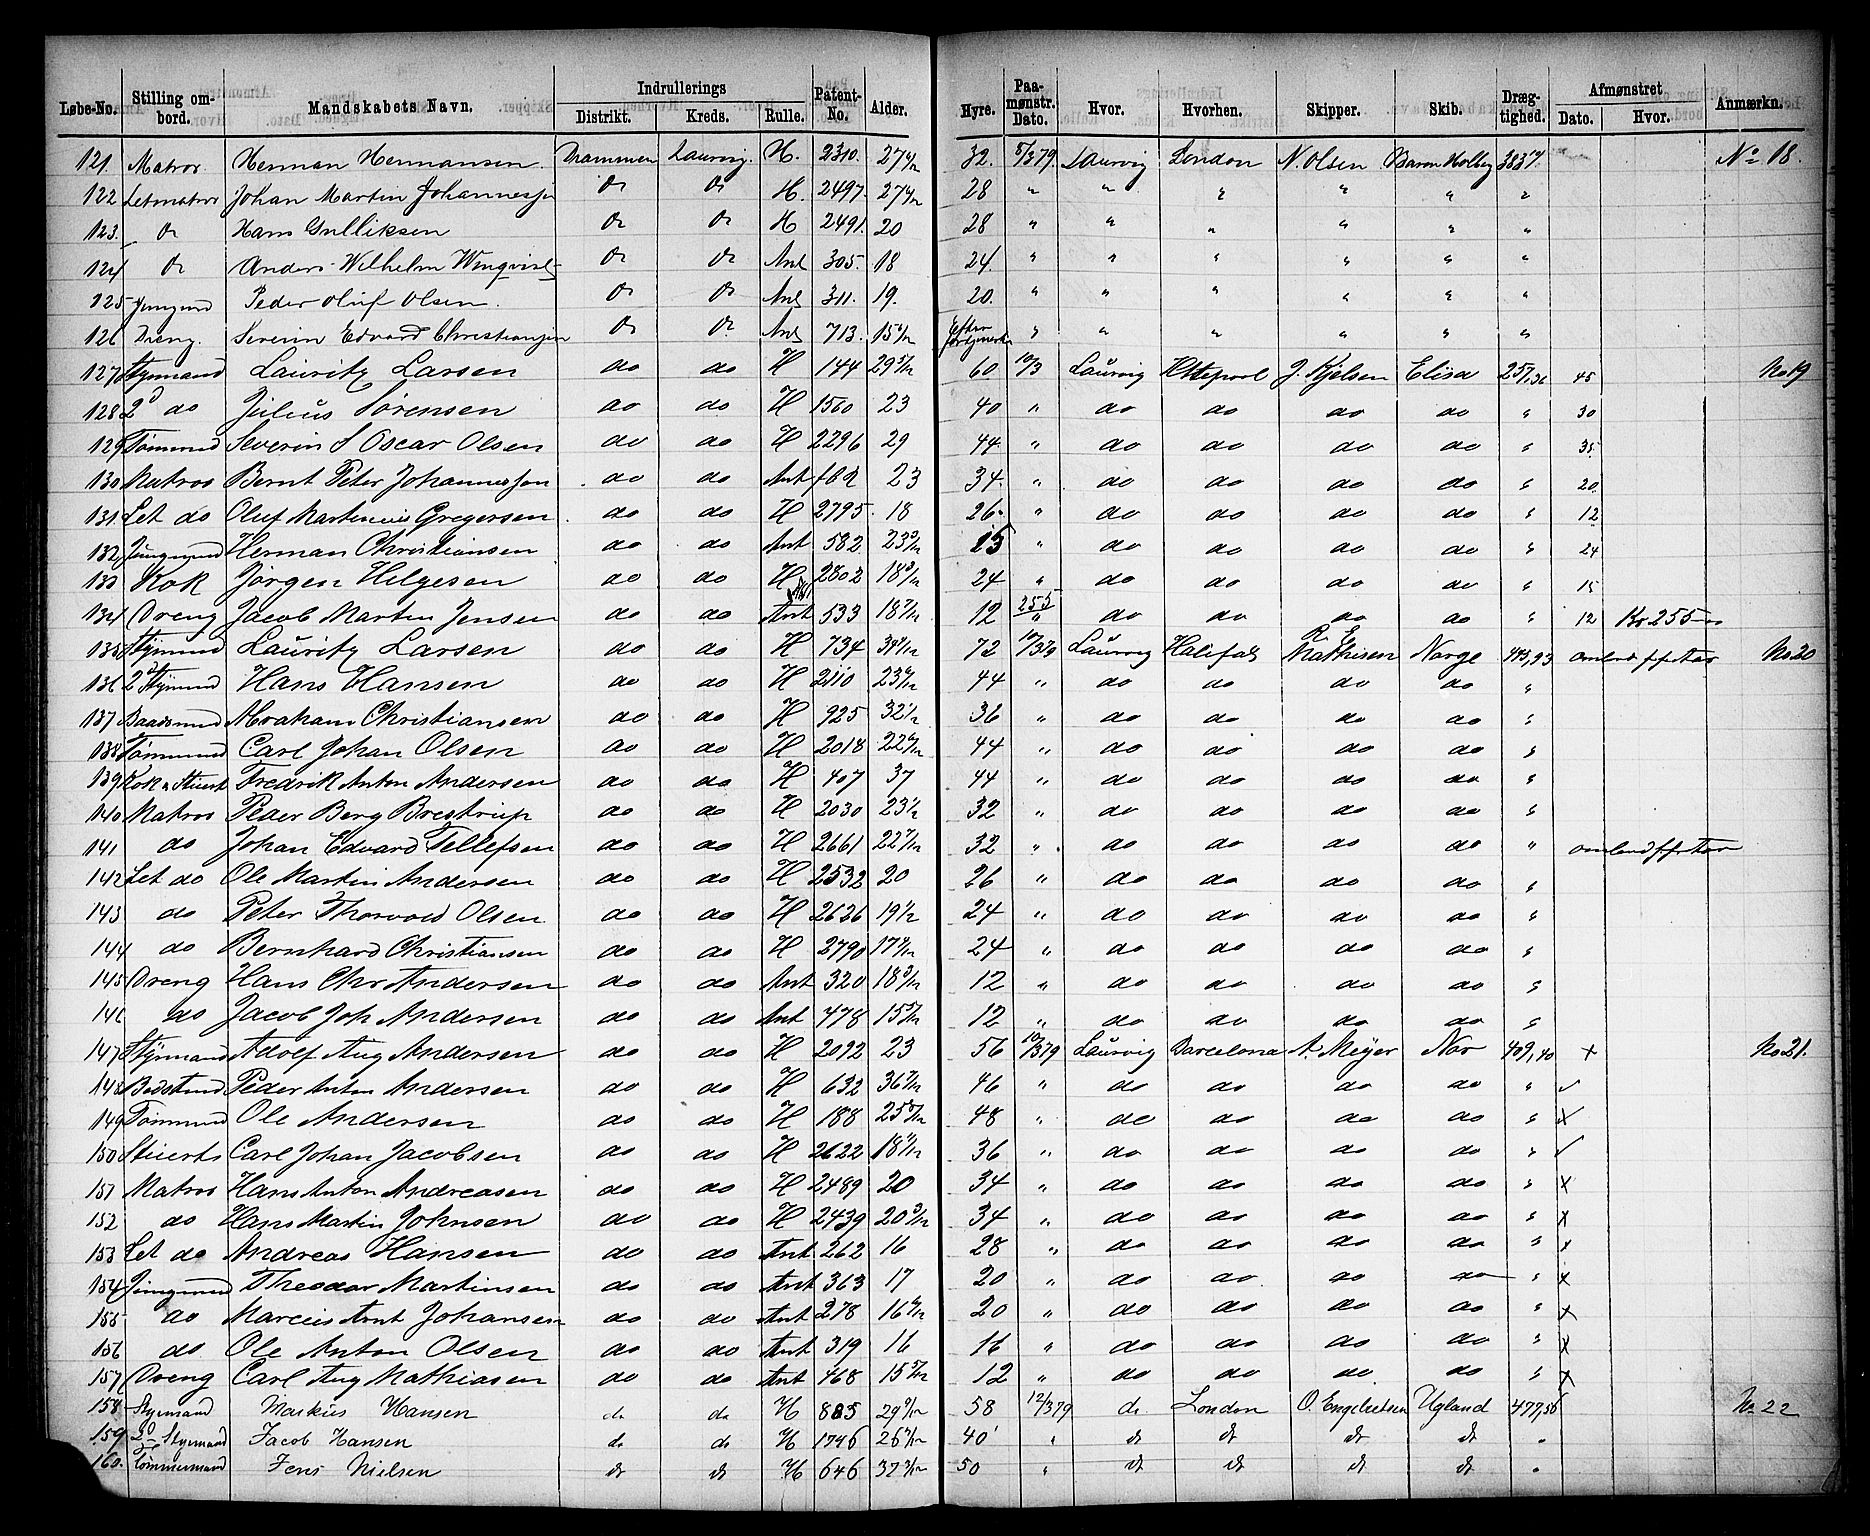 Løbe-No. Stilling ombord. Mandskabets Navn. Indrullerings Distrikt. Kreds. Rulle. Patent-No. Alder. Hyre. Paamønstr. Dato. Hvor. Hvorhen. Skipper. Skib. Drægtighed. Afmønstret Dato. Hvor. Anmærkn.
121. Matros. Herman Hermansen. Drammen Laurvig. H. 2310. 32. 5/3 79. Laurvig London N. Olsen Baron Holberg No 18.
122 Letmatros Johan Martin Johannessen do do H. 2497. 28 " " " " " "
123. do Hans Gulliksen do do H 2491. 20 28 " " " " " "
124 do Anders Wilhelm Winqvist do do Ant 305. 18 24. " " " " " "
125 Jungmd Peder Oluf Olsen. do do Ant 311. 19. 20. " " " " " "
126 Dreng. Severin Edvard Christiansen do do Ant 713. " " " " " "
127 Styrmand Lauritz Larsen do do H 144 29 5/12 60 10/3 Laurvig Httepool J. Kjelsen Elisa 45 No 19
128 2d do Julius Sørensen do do H 1560 23 40 " do do do do " 30
129 Tømmd Severin S Oscar Olsen do do H 2296 29 44 " do do do do " 35
130 Matros Bernt Peter Johannessen do do Ant 23 34 " do do do do " 20
131 Let do Oluf Martinius Gregersen do do H 2795 18 26 " do do do do " 12
132 Jungmd Herman Christiansen do do Ant 582 15 " do do do do " 24
133 Kok Jørgen Helgesen do do H 2802 24 " do do do do " 15
134 Dreng Jacob Martin Jensen do do Ant 533 12 255 " do do do do " 12 Kr 255
135 Styrmd Lauritz Larsen do do H 734 72 10/3 79 Laurvig Halifax R. E. Mathisen Norge No 20
136 2d Styrmd Hans Hansen do do H 2110 44 " do do do do "
137 Baadsmd Abraham Christiansen do do H 925 36 " do do do do "
138 Tømmd Carl Johan Olsen do do H 2018 44 " do do do do "
139 Kok & Stuert Fredrik Anton Andersen do do H 407 37 44 " do do do do "
140 Matros Peder Berg Brestrup do do H 2030 32 " do do do do "
141 do Johan Edvard Tellefsen do do H 2661 32 " do do do do "
142 Let do Ole Martin Andersen do do H 2532 20 26 " do do do do "
143 do Peter Thorvald Olsen do do H 2626 24 " do do do do "
144 do Bernhard Christiansen do do H 2790 24 " do do do do "
145 Dreng Hans Chr Andersen do do Ant 320 12 " do do do do "
146 do Jacob Joh Andersen do do Ant 478 12 " do do do do "
147 Styrmand Adolf Aug Andersen do do H 2092 23 56 10/3 79 Laurvig Barcelona A. Meyer Nor 409,40 x No 21.
148 Peder Anton Andersen do do H 632 46 " do do do do "
149 Tømmmd Ole Andersen do do H 188 48 " do do do do " x
150 Stuert Carl Johan Jacobsen do do H 2622 36 " do do do do "
151 Matros Hans Anton Andreasen do do H 2489 20 34 " do do do do " x
152 do Hans Martin Johnsen do do H 2439 20 3/12 34 " do do do do " x
153 Let do Andreas Hansen do do Ant 262 16 28 " do do do do " x
154 Jungmd Theodor Martinsen do do Ant 363 17 20 " do do do do " x
155 do Marcius Arnt Johansen do do Ant 278 20 " do do do do " x
156 do Ole Anton Olsen do do Ant 319 16 16 " do do do do " x
157 Dreng Carl Aug Mathiasen do do Ant 468 15 5/12 12 " do do do do " x
158 Styrmand Markus Hansen do do H 885 58 12/3 79 do London O. Engebretsen Ugland 477,56 No 22
159 2d Styrmand Jacob Hansen do do H 1746 40 " do do do do "
160. Tømmermand Jens Nielsen do do H 646 50 " do do do do "